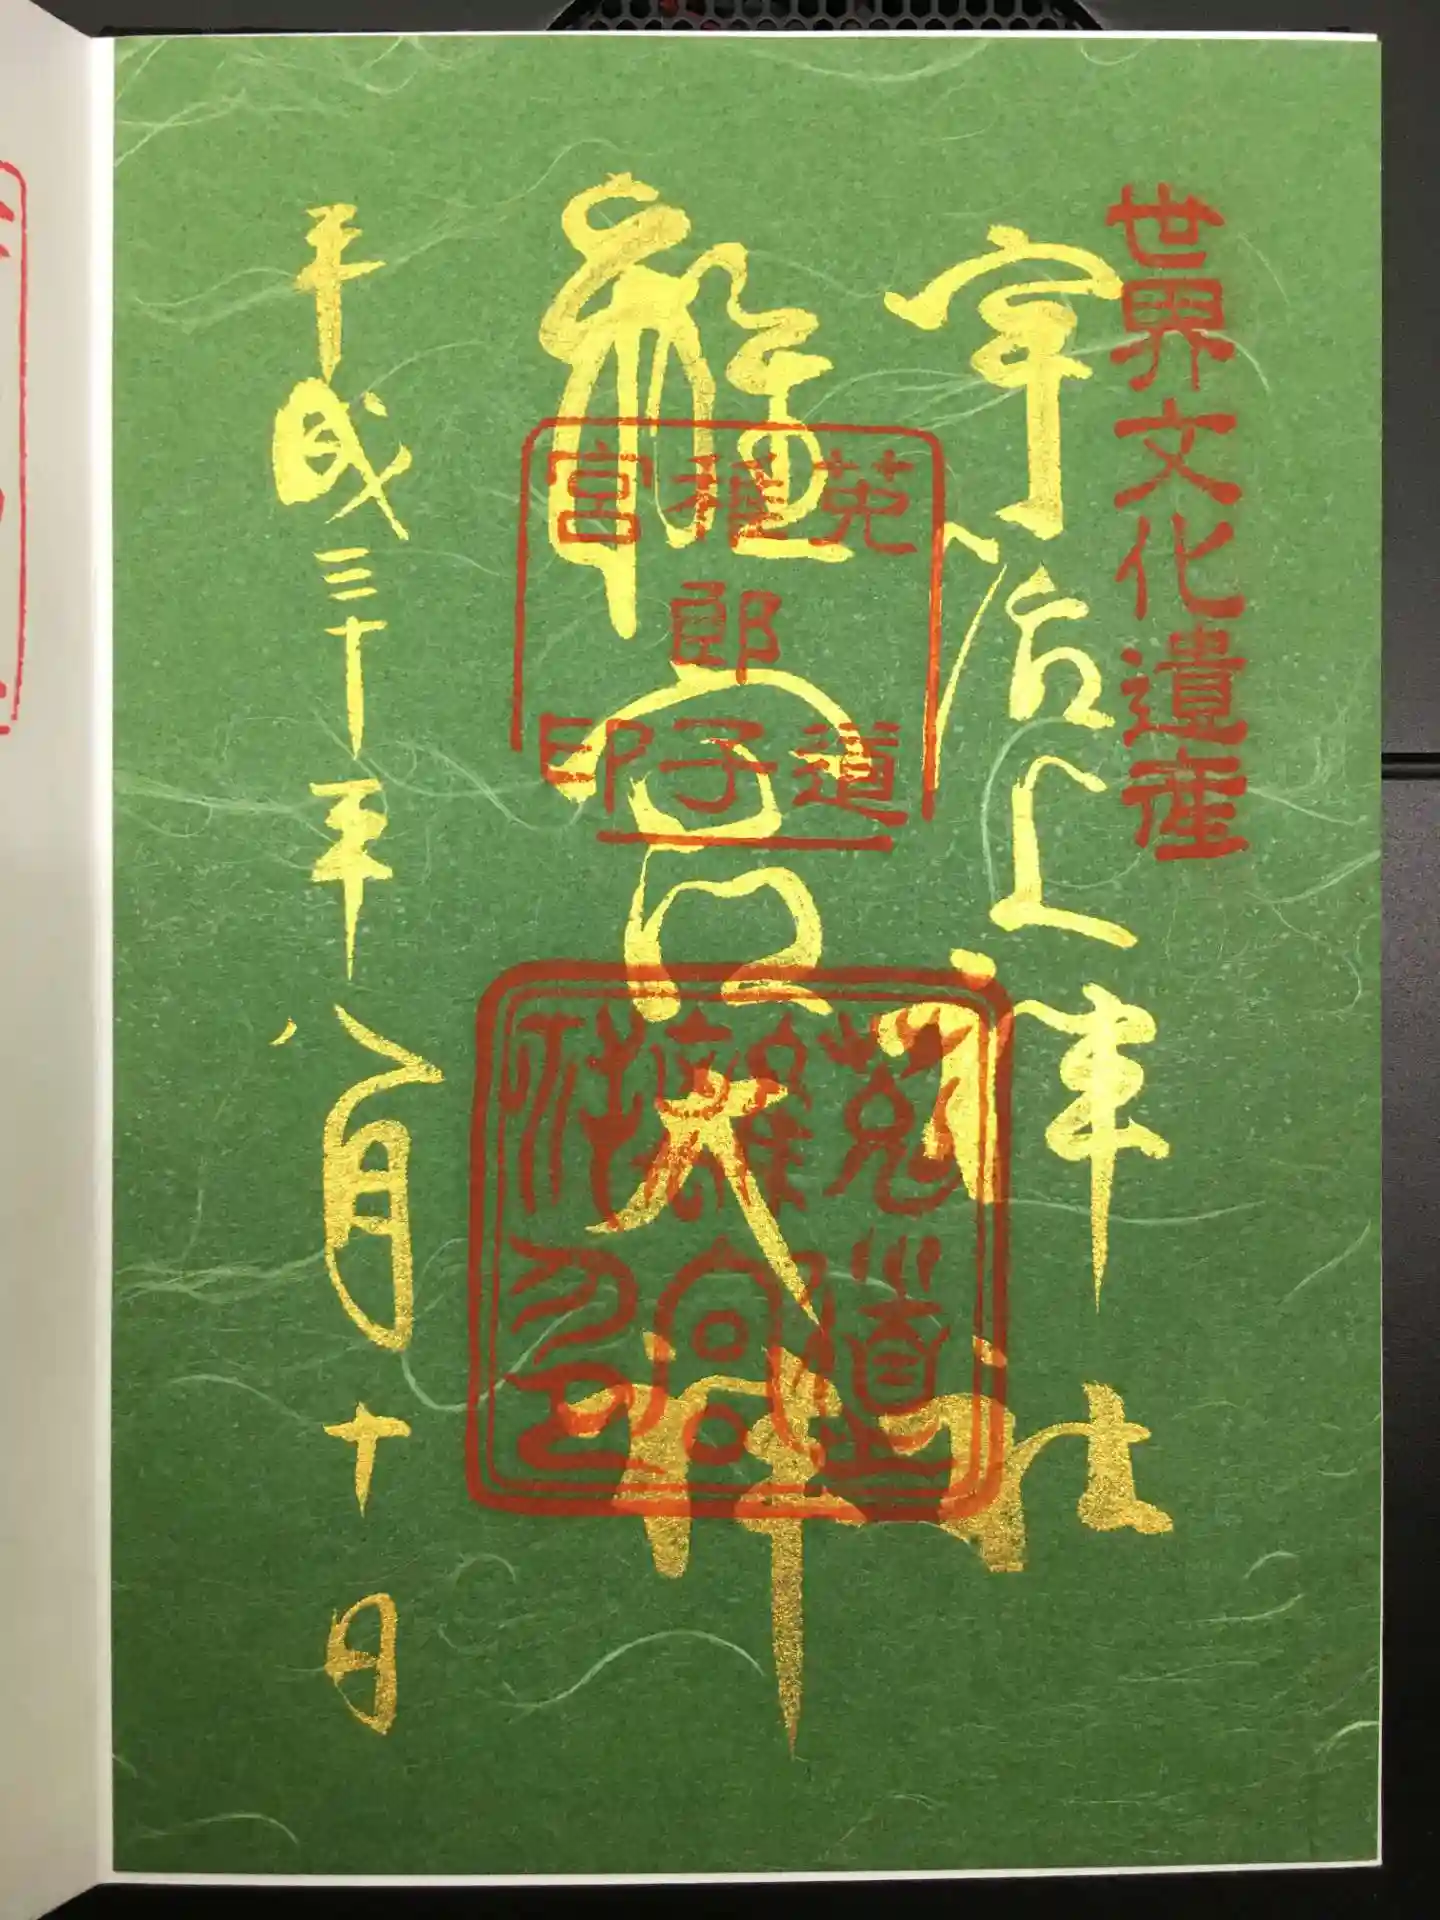 世界文化遺産
宇治上神社
離宮大神
莵道
稚郎子
宮印
莵道
離宮
社印
平成三十年八月十日